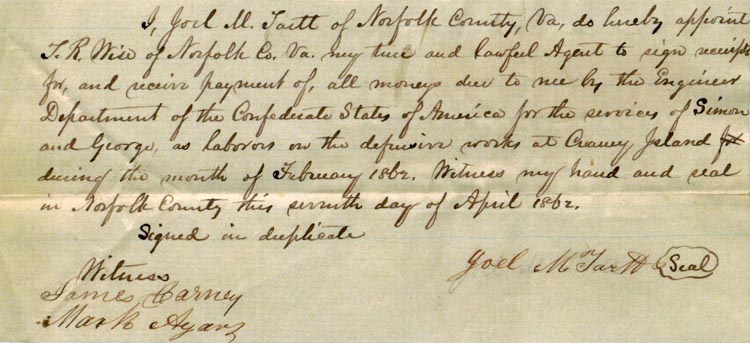 I, Joel M. Tartt of Norfolk County, Va, do hereby appoint
T. R. Wise of Norfolk Co. Va. my true and lawful Agent to sign receipts
for, and receive payment of, all moneys due to me by the Engineer
Department of the Confederate States of America for the services of Simon
and George, as laborors on the defensive works at Craney Island
during the month of February 1862. Witness my hand and seal
in Norfolk County this seventh day of April 1862.
Signed in duplicate
Joel M Tartt Seal
Witness
James Carney
Mark